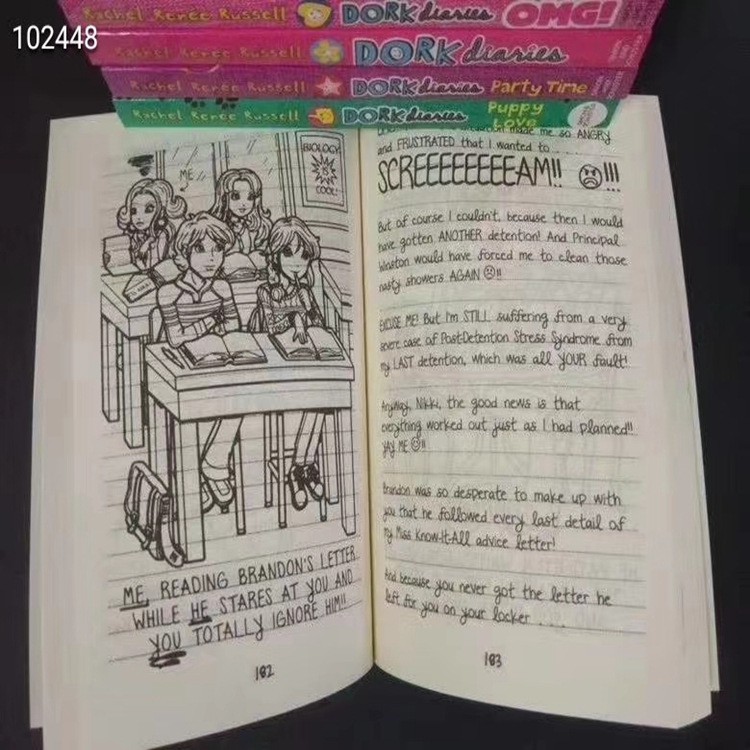 102448
Rachel Renee Russell DORK diaries OMG!
Rachel Renee Russell DORK diaries
Rachel Renee Russell DORK diaries Party Time
Rachel Renee Russell DORK diaries Puppy Love
BIOLOGY
IS
COOL!
ME
ME, READING BRANDON'S LETTER
WHILE HE STARES AT YOU AND
YOU TOTALLY IGNORE HIM!!
182
made me so ANGRY
and FRUSTRATED that I wanted to . . .
SCREEEEEEEEEAM!! !!!
But of course I couldn't, because then I would
have gotten ANOTHER detention! And Principal
Winston would have forced me to clean those
nasty showers AGAIN !!
EXCUSE ME! But I'm STILL suffering from a very
severe case of Post-Detention Stress Syndrome from
my LAST detention, which was all YOUR fault!
Anyway, Nikki, the good news is that
everything worked out just as I had planned!!
YAY ME !!
Brandon was so desperate to make up with
you that he followed every last detail of
my Miss Know-It-All advice letter!
And because you never got the letter he
left for you on your locker . . .
183